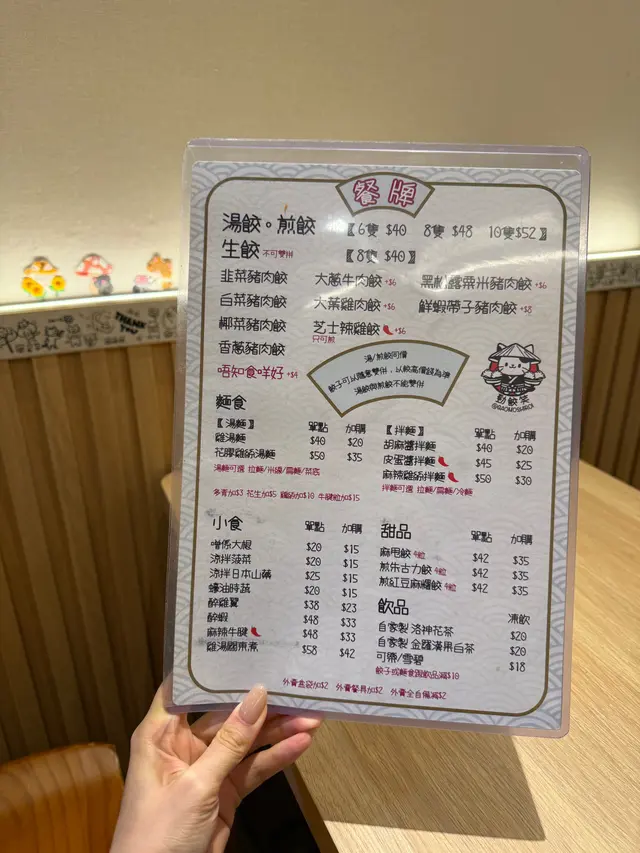 餐牌
湯餃。煎餃 【6隻 $40 8隻 $48 10隻$52】
生餃 不可雙拼 【8隻 $40】
韭菜豬肉餃 大蔥牛肉餃 +$6 黑松露粟米豬肉餃 +$6
白菜豬肉餃 大葉雞肉餃 +$6 鮮蝦帶子豬肉餃 +$8
椰菜豬肉餃 芝士辣雞餃 +$6
只可煎
香蔥豬肉餃
唔知食咩好 +$4
湯/煎餃同價
餃子可以隨意雙併，以較高價錢為準
湯餃與煎餃不能雙併
勁餃笑
麵食
【湯麵】 單點 加購
雞湯麵 $40 $20
花膠雞絲湯麵 $50 $35
湯麵可選 拉麵/米線/扁麵/菜底
多青加$3 花生加$5 雞絲加$10 牛腱粒加$15
【拌麵】 單點 加購
胡麻醬拌麵 $40 $20
皮蛋醬拌麵 $45 $25
麻辣雞絲拌麵 $50 $30
拌麵可選 拉麵/扁麵/冷麵
小食 單點 加購
噌係大根 $20 $15
涼拌菠菜 $20 $15
涼拌日本山藥 $25 $15
蠔油時蔬 $20 $15
醉雞翼 $38 $23
醉蝦 $48 $33
麻辣牛腱 $48 $33
雞湯關東煮 $58 $42
甜品 單點 加購
麻甩餃 4粒 $42 $35
煎朱古力餃 4粒 $42 $35
煎紅豆麻糬餃 4粒 $42 $35
飲品 凍飲
自家製 洛神花茶 $20
自家製 金羅漢果白茶 $20
可樂/雪碧 $18
餃子或麵食跟飲品減$10
外賣盒袋加$2 外賣餐具加$2 外賣全自備減$2
THANK YOU